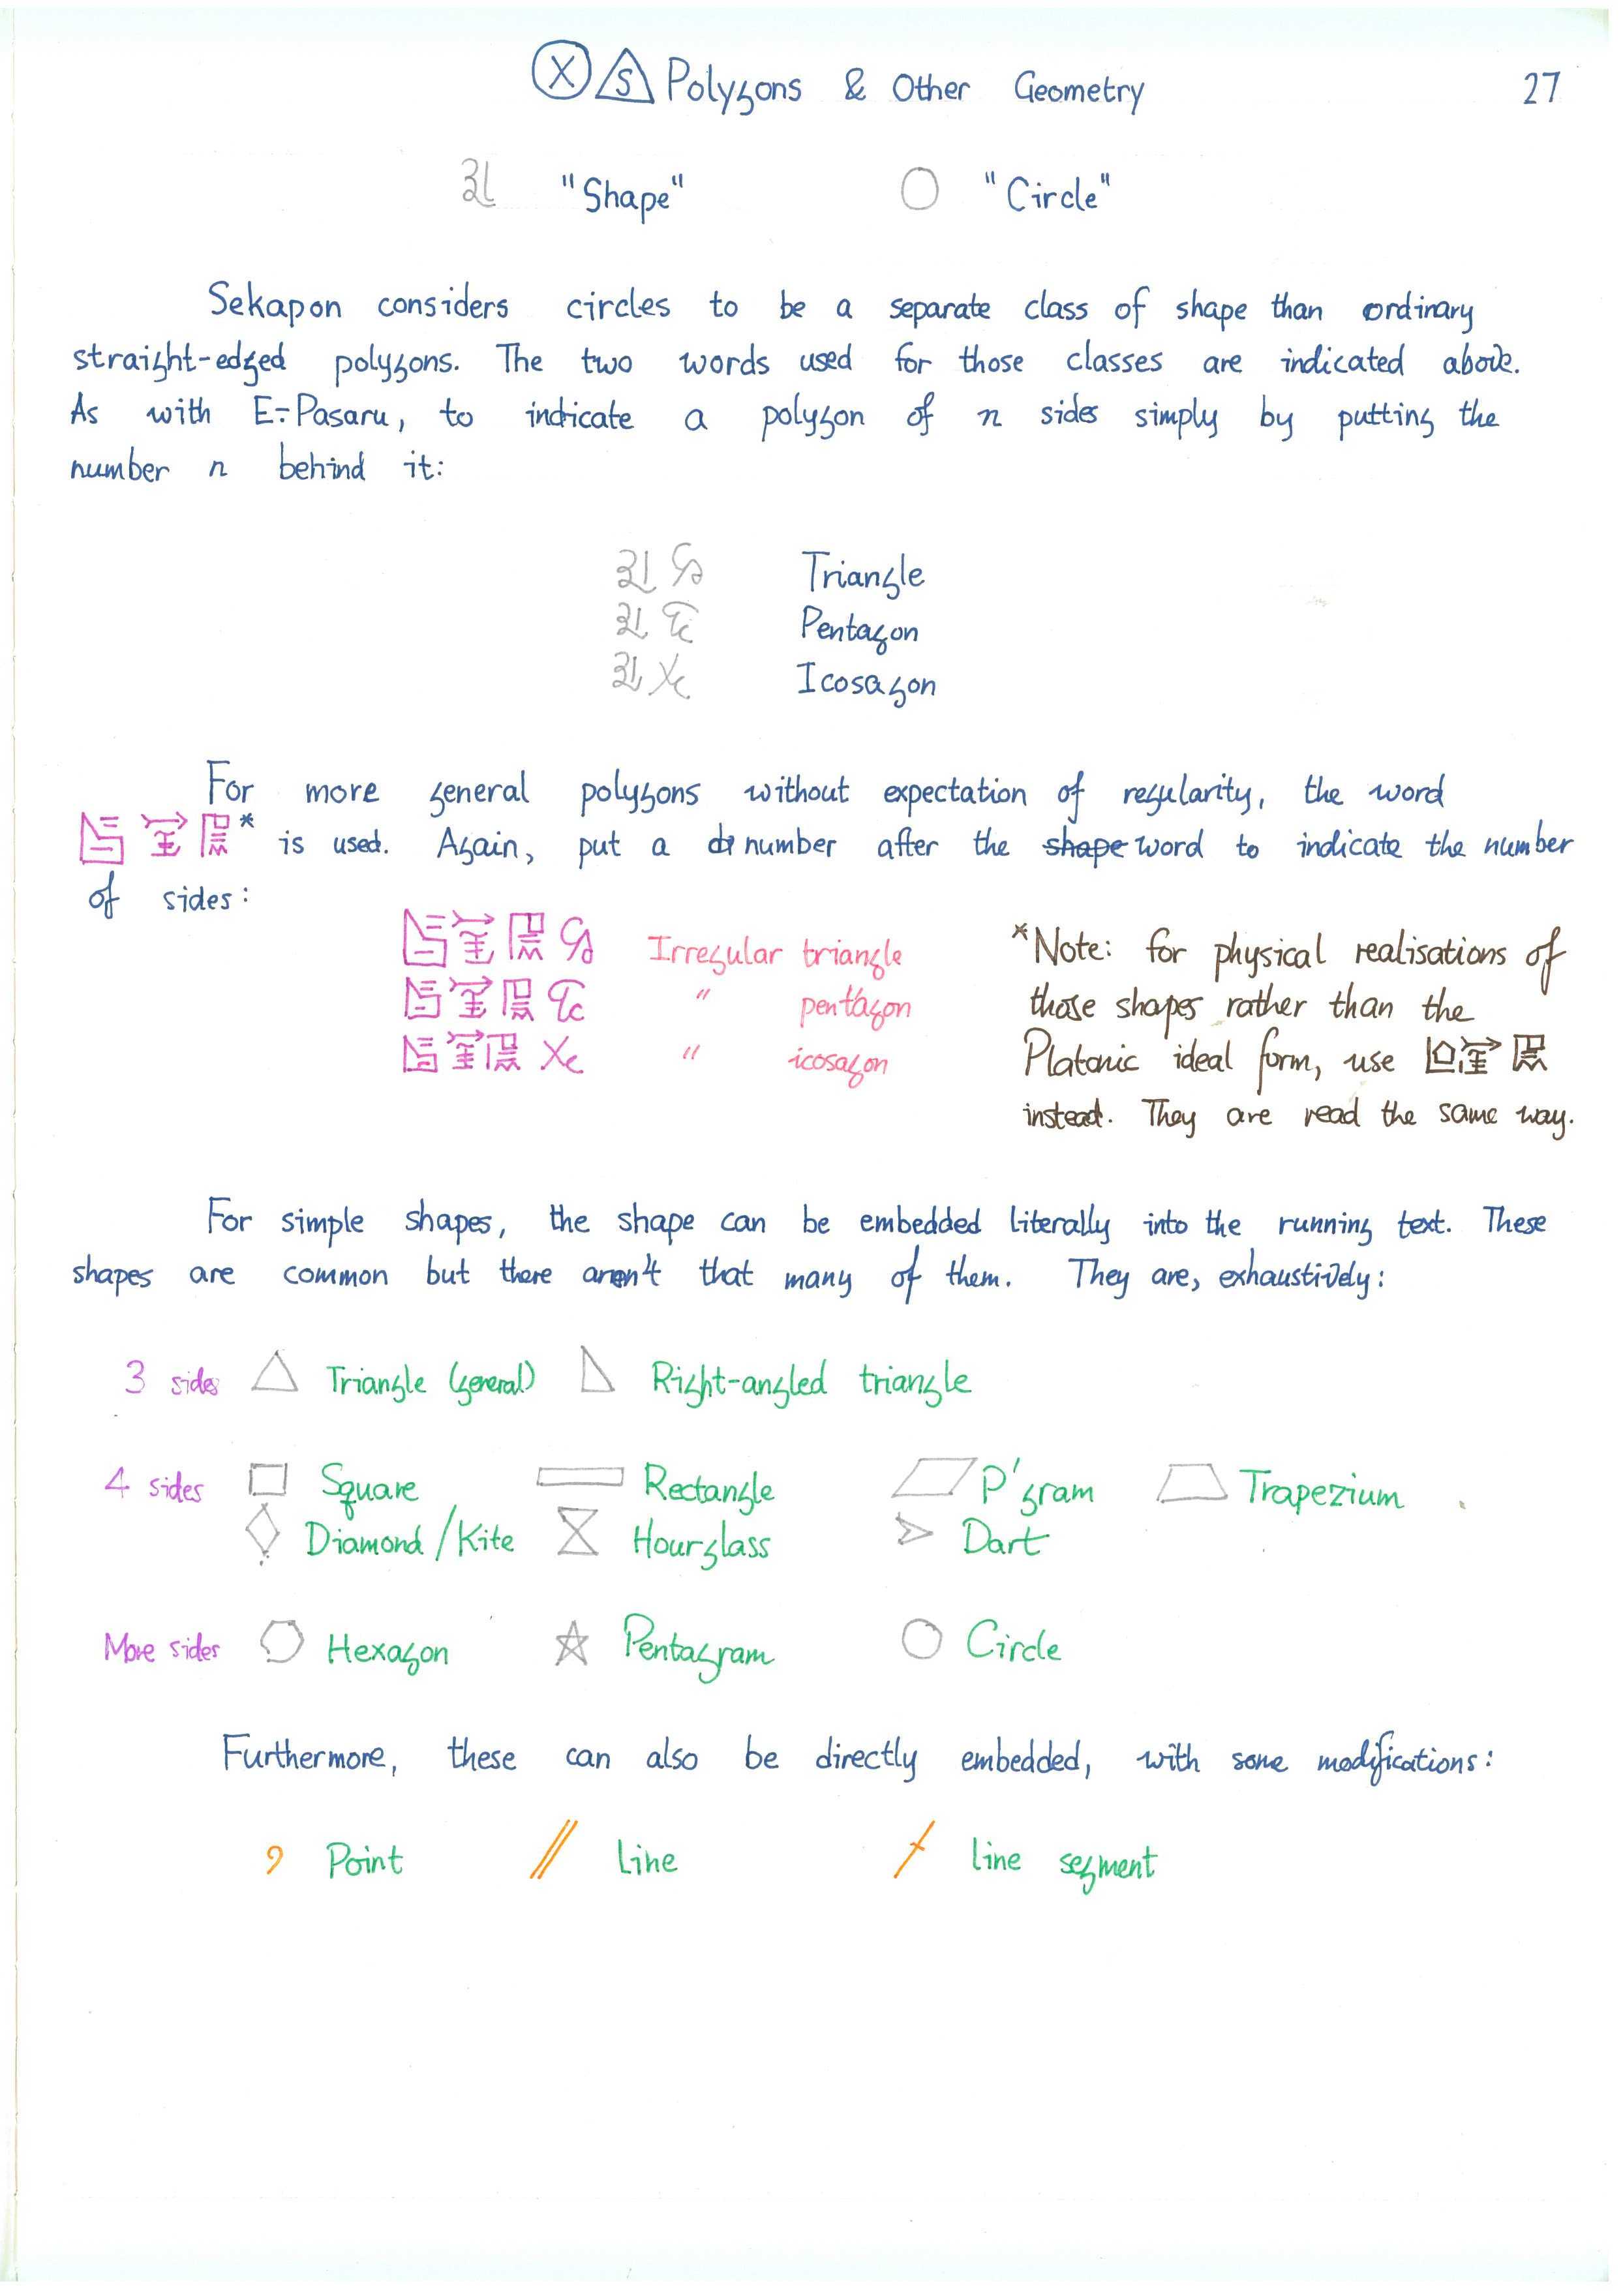 X S Polygons & Other Geometry 27
"Shape" "Circle"
Sekapon considers circles to be a separate class of shape than ordinary
straight-edged polygons. The two words used for those classes are indicated above.
As with E-Pasaru, to indicate a polygon of n sides simply by putting the
number n behind it:
Triangle
Pentagon
Icosagon
For more general polygons without expectation of regularity, the word
* is used. Again, put a number after the shape word to indicate the number
of sides:
Irregular triangle
" pentagon
" icosagon
*Note: for physical realisations of
those shapes rather than the
Platonic ideal form, use
instead. They are read the same way.
For simple shapes, the shape can be embedded literally into the running text. These
shapes are common but there aren't that many of them. They are, exhaustively:
3 sides Triangle (general) Right-angled triangle
4 sides Square Rectangle P'gram Trapezium
Diamond/Kite Hourglass Dart
More sides Hexagon Pentagram Circle
Furthermore, these can also be directly embedded, with some modifications:
Point Line line segment